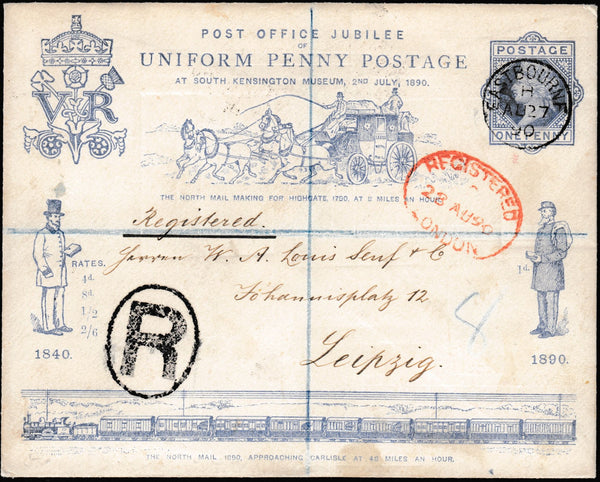 POST OFFICE JUBILEE
OF
UNIFORM PENNY POSTAGE
AT SOUTH KENSINGTON MUSEUM, 2ND JULY, 1890.
VR
POSTAGE
ONE PENNY
EASTBOURNE
H
AU 27
90
THE NORTH MAIL MAKING FOR HIGHGATE, 1790, AT 8 MILES AN HOUR.
REGISTERED
28 AU 90
LONDON
Registered.
Herren W. A. Louis Senf & C
Johannisplatz 12
Leipzig.
RATES.
4d.
8d.
1/2
2/6
1840.
1d.
1890.
R
4
THE NORTH MAIL 1890, APPROACHING CARLISLE AT 48 MILES AN HOUR.